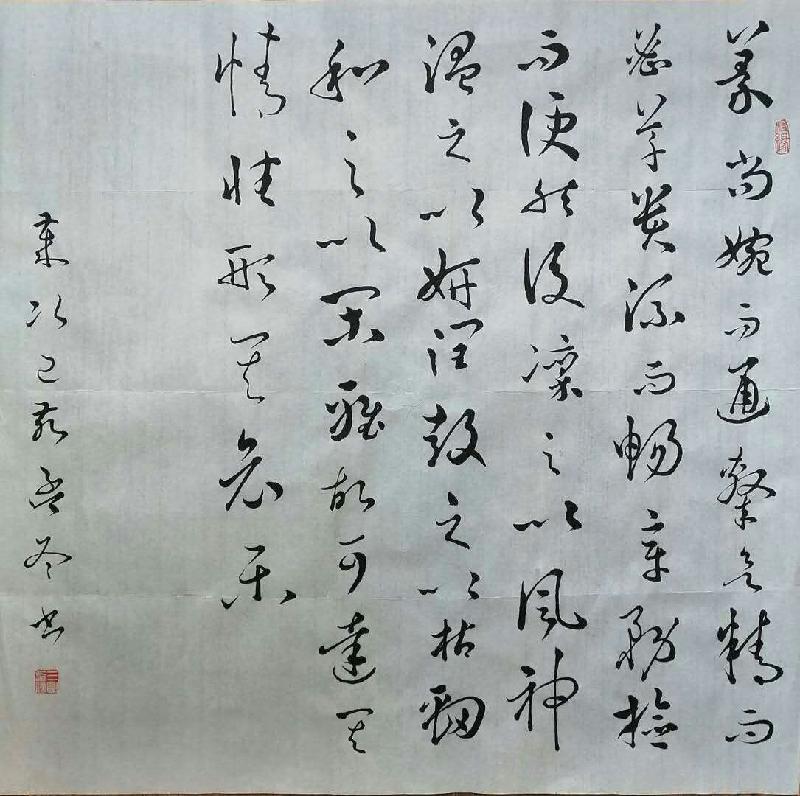 篆尚婉而通隸欲精而
密草貴流而暢章務檢
而便然後凜之以風神
溫之以妍潤鼓之以枯勁
和之以閑雅故可達其
情性形其哀樂
歲次己亥孟冬书